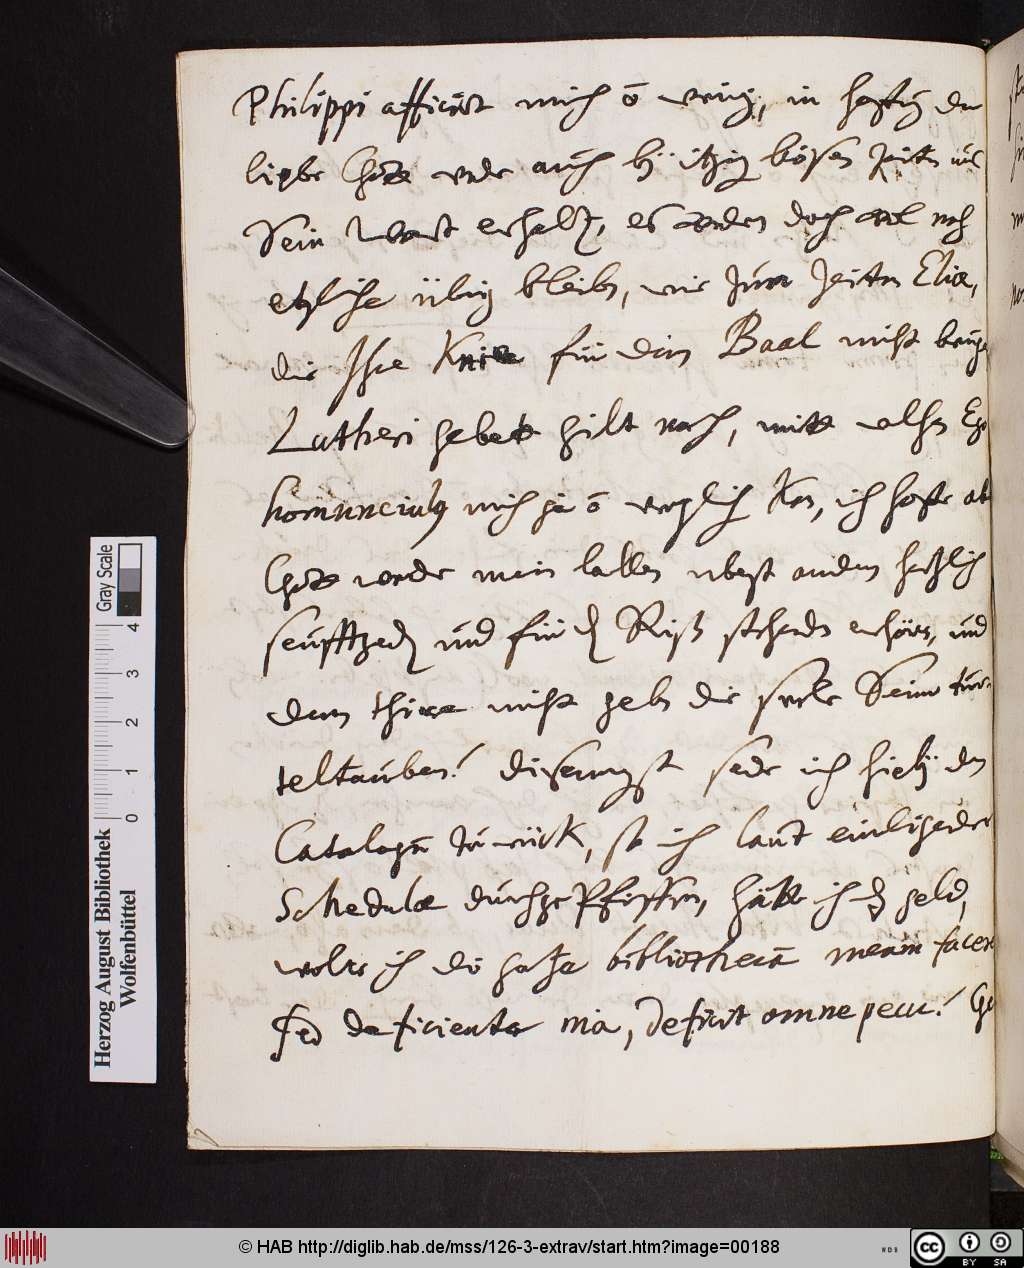 Philippi afficirt mich õ wenig, in hoffnũg der
liebe Gott werde auch bÿ itzig bösen Zeiten uns
Sein Wort erhaltẽ, es werden doch wol noch
etzliche übrig bleibn, wie zur Zeitn Eliæ,
die Ihre Knie für dem Baal nicht beuge
Lutheri gebett gilt noch, mitt welchn Ego
homunciulꝰ mich ja õ verglich Kan, ich hoffe ab
Gott werde mein lallen nebst andern hertzlich
seufftzedẽ und für dẽ Riß stehendn erhörn, und
dem thiere nicht gebn die seele Seiner tur-
teltauben! diesemegst sende ich hiebÿ den
Catalogũ zurück, so ich laut einligender
Schedulæ durchgepfiffen, hätte ich dz geld,
wolte ich die gantze bibliothecã meam facere
sed deficiente nĩa, deficit omne pecu! Go
Herzog August Bibliothek
Wolfenbüttel
Gray Scale
0 1 2 3 4
© HAB http://diglib.hab.de/mss/126-3-extrav/start.htm?image=00188
WDB
cc BY SA